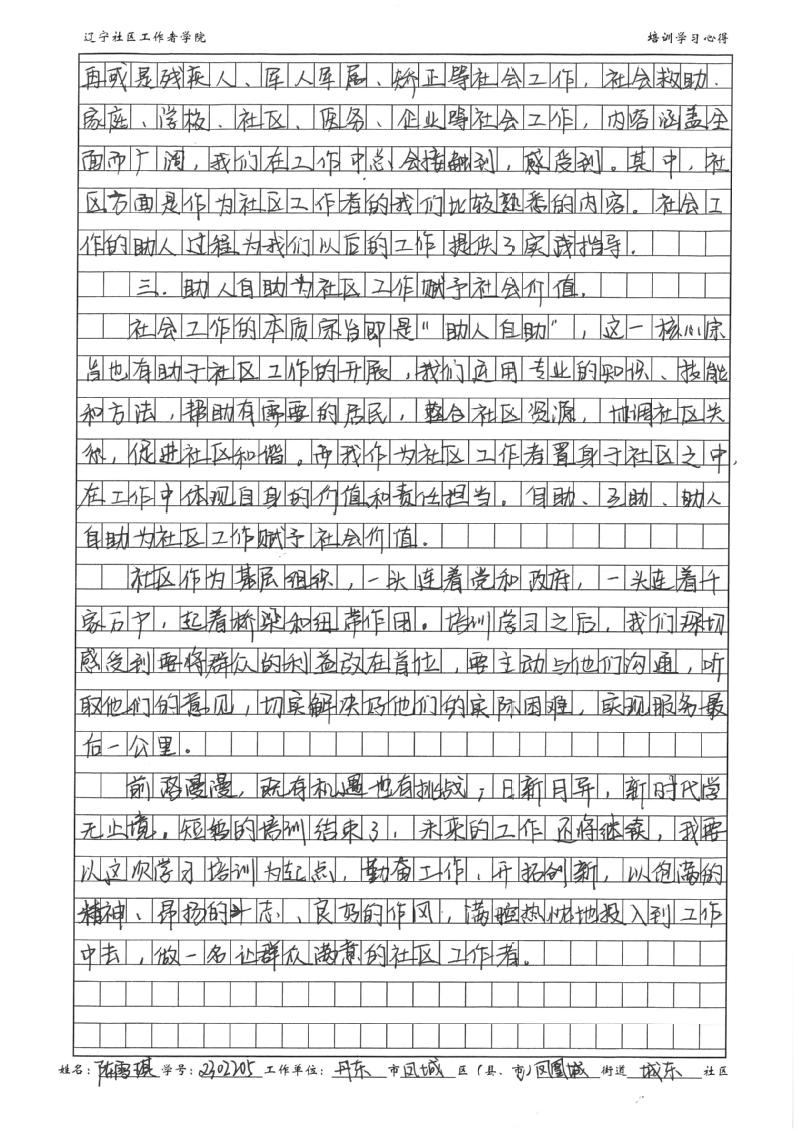 辽宁社区工作者学院 培训学习心得
再或是残疾人、军人军属、矫正等社会工作，社会救助、
家庭、学校、社区、医务、企业等社会工作，内容涵盖全
面而广阔，我们在工作中总会接触到，感受到。其中，社
区方面是作为社区工作者的我们比较熟悉的内容。社会工
作的助人过程为我们以后的工作提供了实践指导。
三、助人自助为社区工作赋予社会价值。
社会工作的本质宗旨即是“助人自助”，这一核心宗
旨也有助于社区工作的开展，我们运用专业的知识、技能
和方法，帮助有需要的居民，整合社区资源，协调社区关
系，促进社区和谐。而我作为社区工作者置身于社区之中，
在工作中体现自身的价值和责任担当。自助、互助、助人
自助为社区工作赋予社会价值。
社区作为基层组织，一头连着党和政府，一头连着千
家万户，起着桥梁和纽带作用。培训学习之后，我们深切
感受到要将群众的利益放在首位，要主动与他们沟通，听
取他们的意见，切实解决好他们的实际困难，实现服务最
后一公里。
前路漫漫，既有机遇也有挑战；日新月异，新时代学
无止境。短暂的培训结束了，未来的工作还将继续，我要
以这次学习培训为起点，勤奋工作、开拓创新，以饱满的
精神、昂扬的斗志、良好的作风，满腔热忱地投入到工作
中去，做一名让群众满意的社区工作者。
姓名：陈雪琪 学号：2302205 工作单位：丹东 市凤城 区（县、市）凤凰城 街道 城东 社区